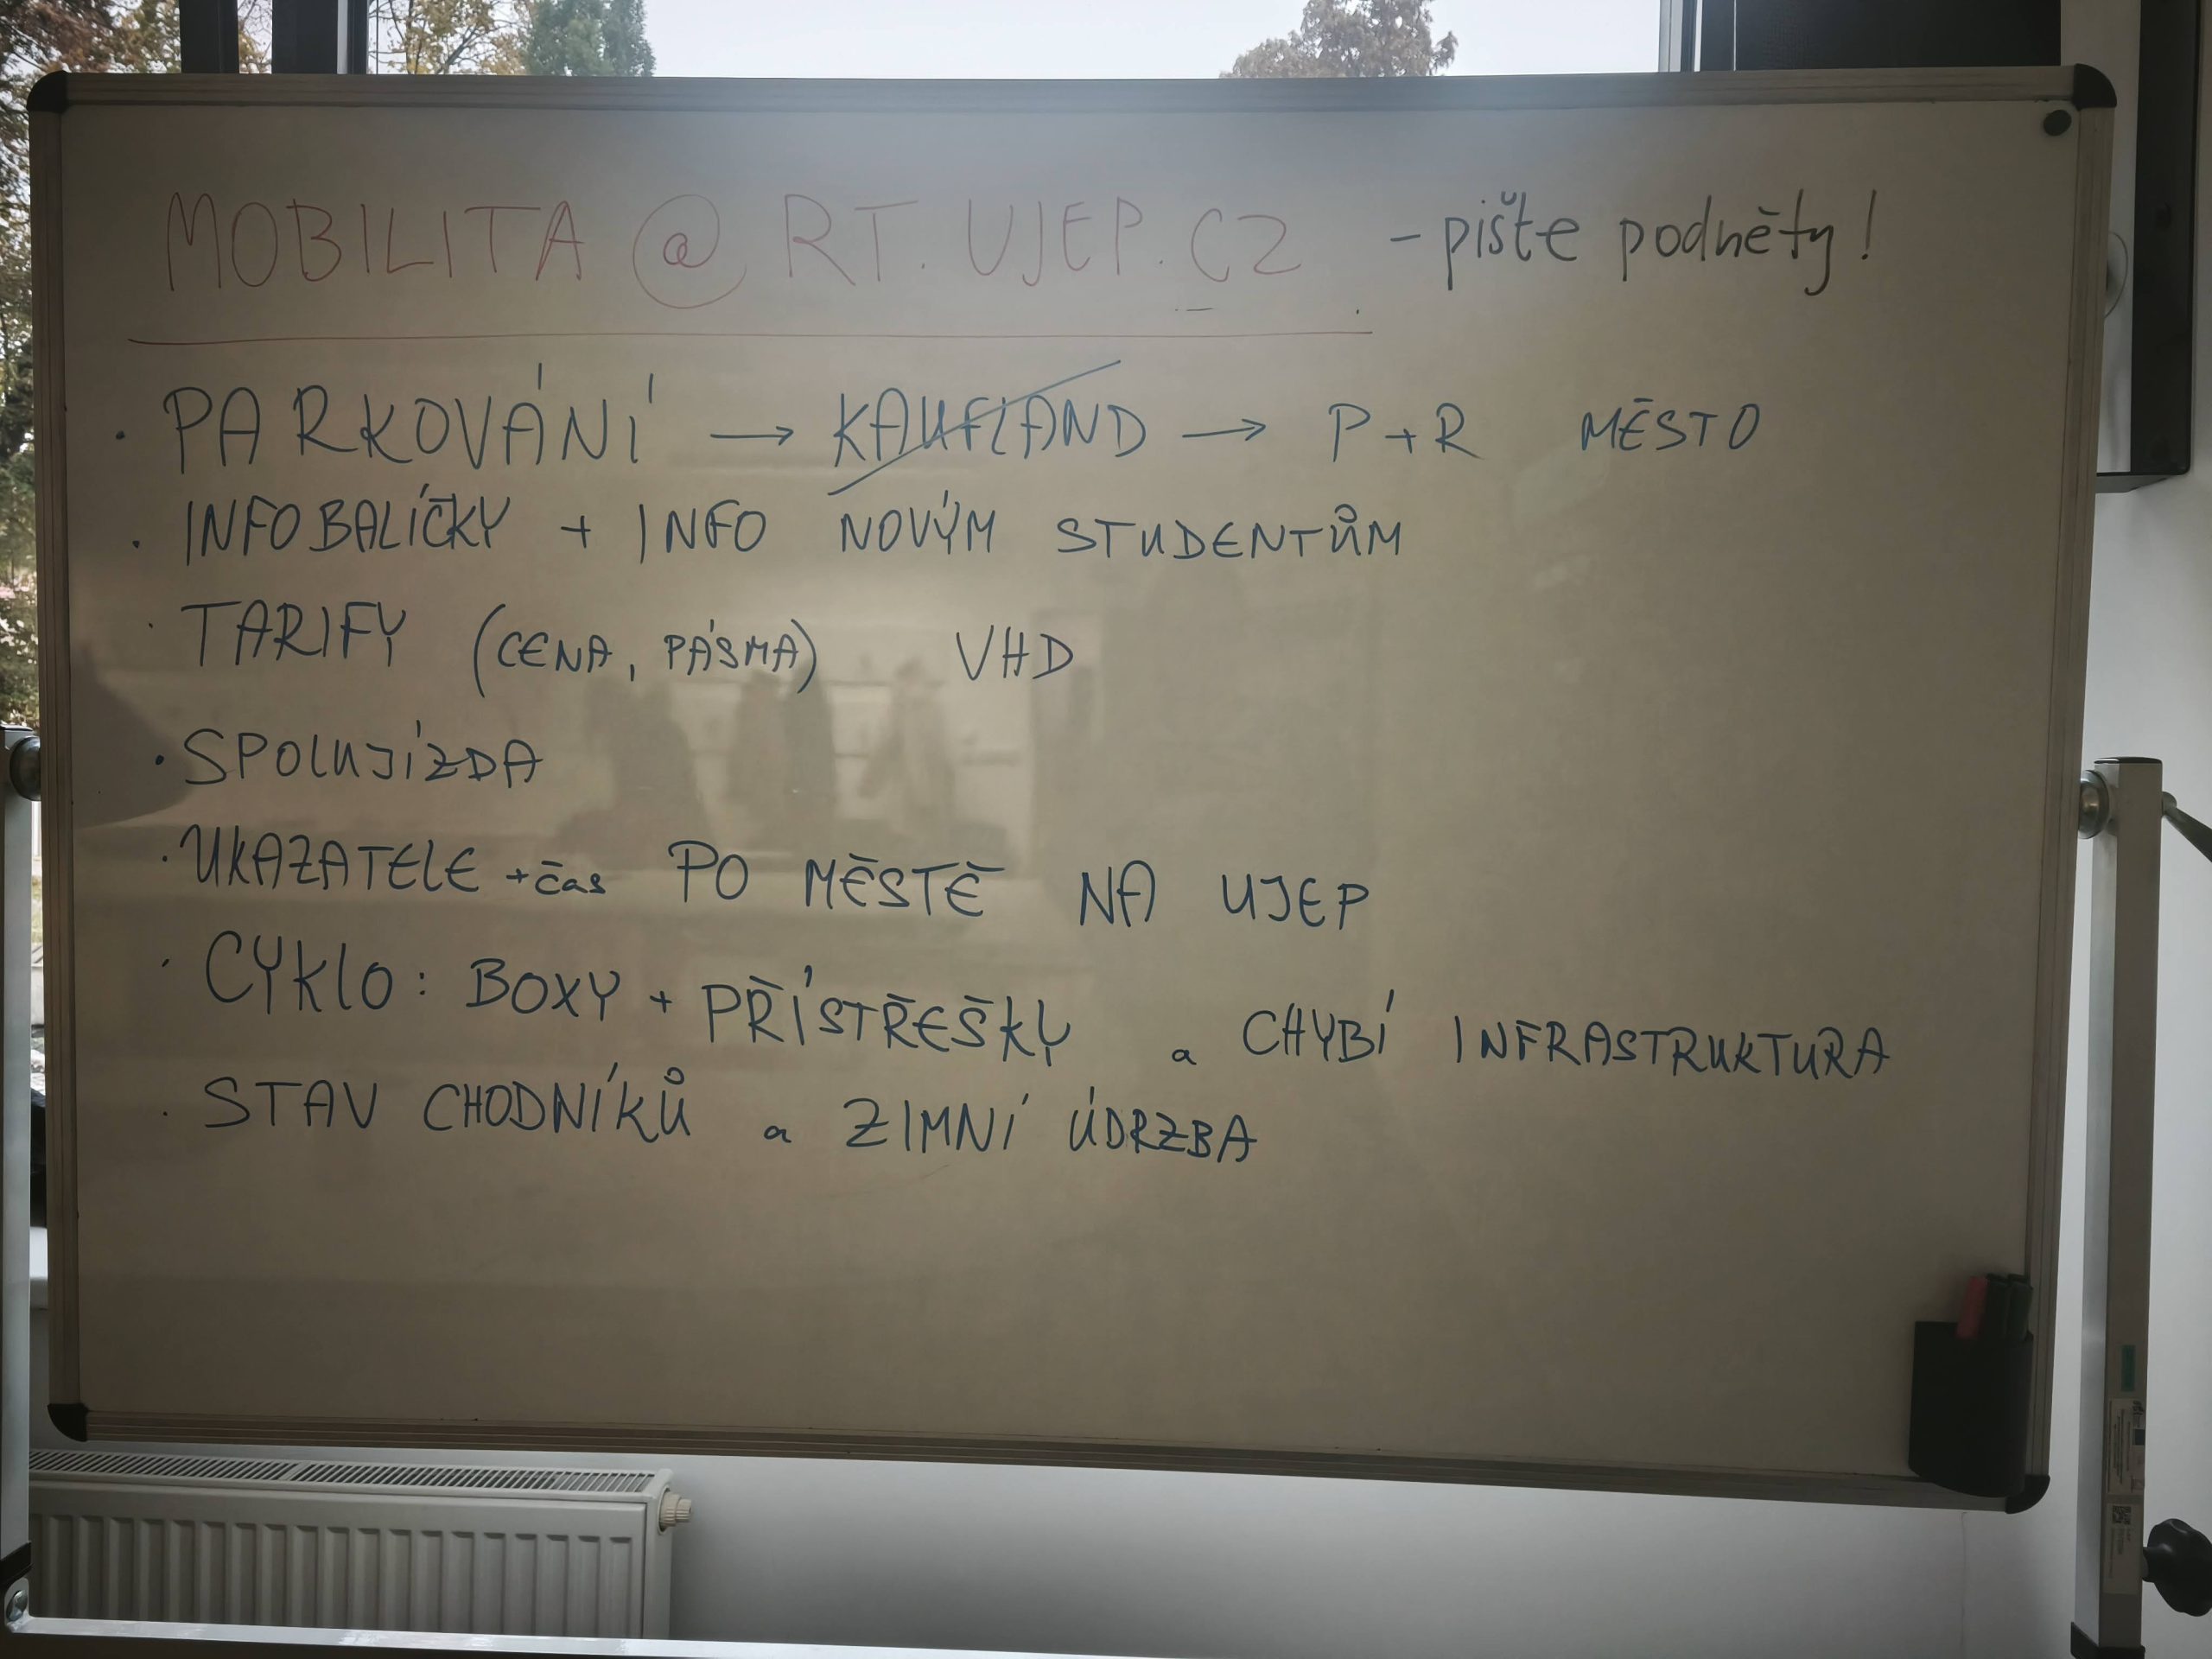 MOBILITA @ RT.UJEP.CZ - pište podněty!
• PARKOVÁNÍ → KAUFLAND → P+R MĚSTO
• INFOBALÍČKY + INFO NOVÝM STUDENTŮM
• TARIFY (CENA, PÁSMA) VHD
• SPOLUJÍZDA
• UKAZATELE + čas PO MĚSTĚ NA UJEP
• CYKLO: BOXY + PŘÍSTŘEŠKY a CHYBÍ INFRASTRUKTURA
• STAV CHODNÍKŮ a ZIMNÍ ÚDRZBA